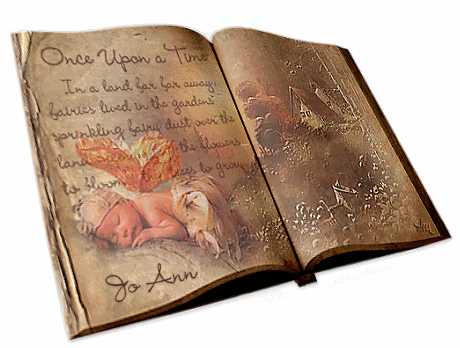 Once Upon a Time
In a land far far away
fairies lived in the gardens
sprinkling fairy dust over the
land the flowers
to bloom trees to grow
Jo Ann